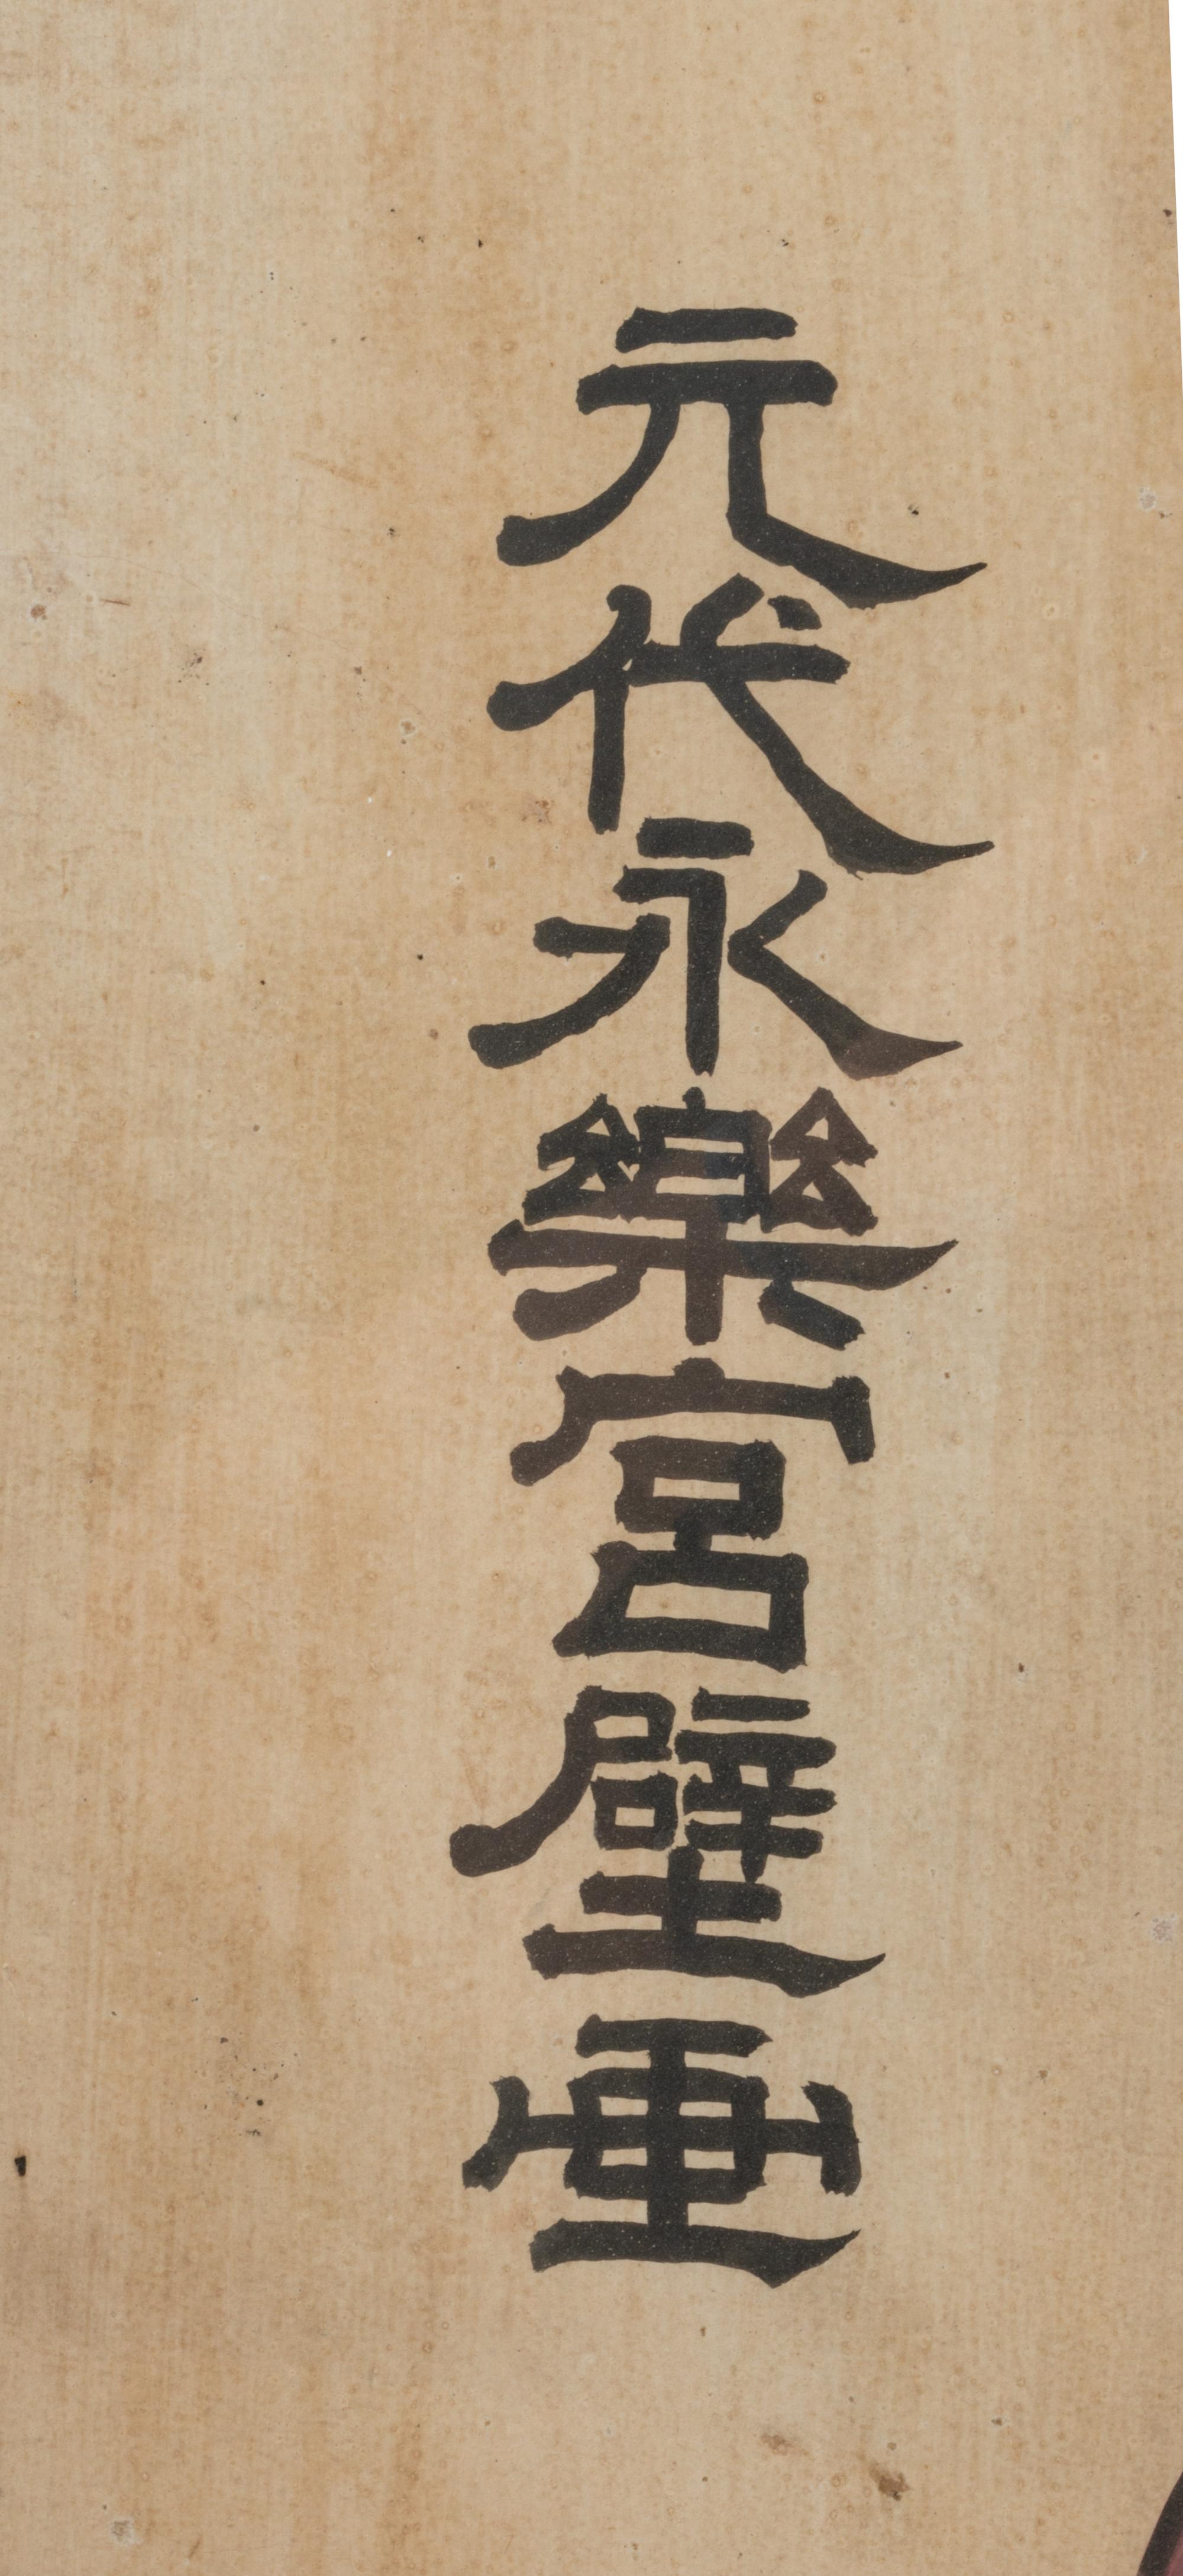 元代永樂宮壁画